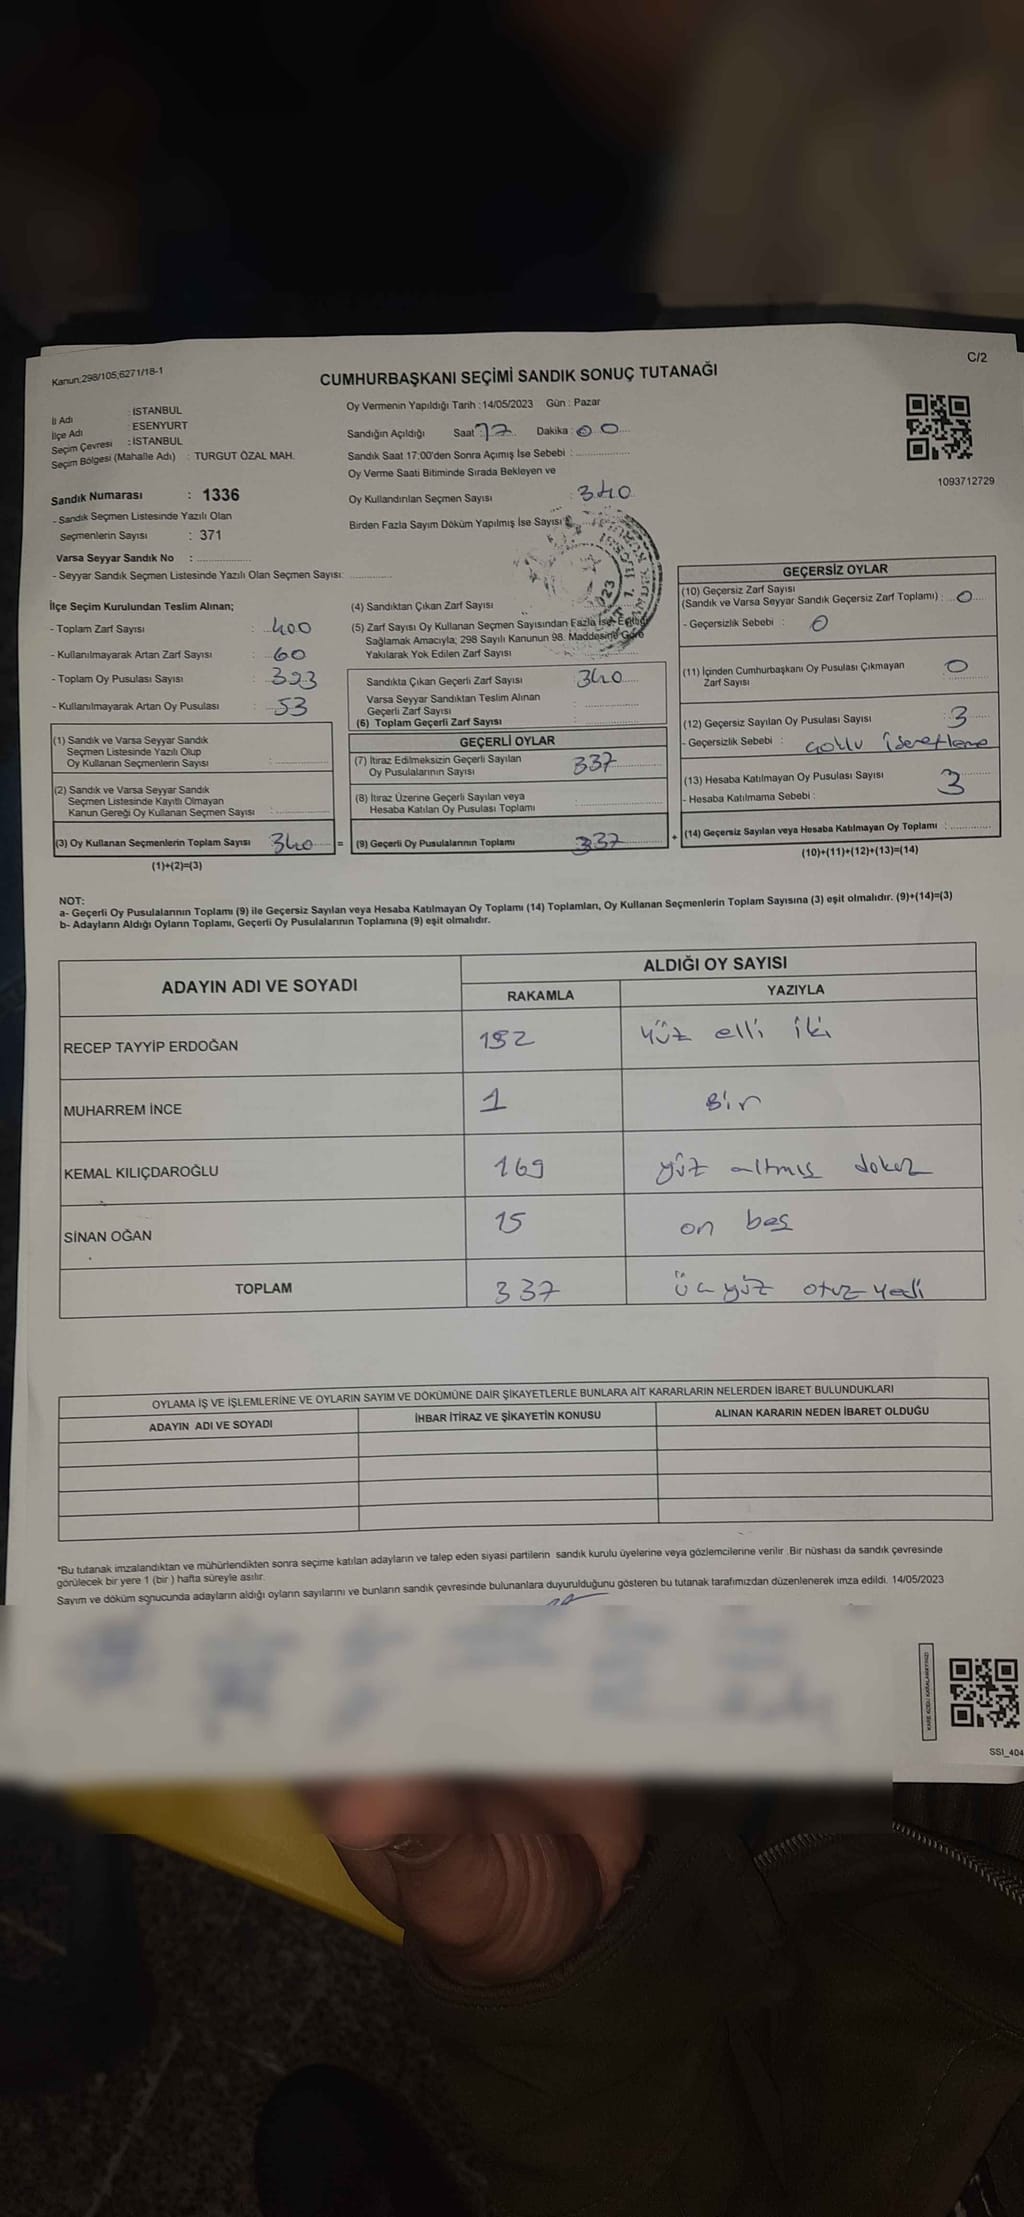 Kanun:298/105;6271/18-1
C/2
CUMHURBAŞKANI SEÇİMİ SANDIK SONUÇ TUTANAĞI
İl Adı : İSTANBUL
İlçe Adı : ESENYURT
Seçim Çevresi : İSTANBUL
Seçim Bölgesi (Mahalle Adı) : TURGUT ÖZAL MAH.
Sandık Numarası : 1336
- Sandık Seçmen Listesinde Yazılı Olan
Seçmenlerin Sayısı : 371
Varsa Seyyar Sandık No :
- Seyyar Sandık Seçmen Listesinde Yazılı Olan Seçmen Sayısı:
Oy Vermenin Yapıldığı Tarih : 14/05/2023 Gün : Pazar
Sandığın Açıldığı Saat : 17 Dakika : 00
Sandık Saat 17:00'den Sonra Açımış İse Sebebi :
Oy Verme Saati Bitiminde Sırada Bekleyen ve
Oy Kullandırılan Seçmen Sayısı : 340
Birden Fazla Sayım Döküm Yapılmış İse Sayısı
1093712729
İlçe Seçim Kurulundan Teslim Alınan;
- Toplam Zarf Sayısı : 400
- Kullanılmayarak Artan Zarf Sayısı : 60
- Toplam Oy Pusulası Sayısı : 393
- Kullanılmayarak Artan Oy Pusulası : 53
(1) Sandık ve Varsa Seyyar Sandık
Seçmen Listesinde Yazılı Olup
Oy Kullanan Seçmenlerin Sayısı :
(2) Sandık ve Varsa Seyyar Sandık
Seçmen Listesinde Kayıtlı Olmayan
Kanun Gereği Oy Kullanan Seçmen Sayısı :
(3) Oy Kullanan Seçmenlerin Toplam Sayısı 340 =
(1)+(2)=(3)
(4) Sandıktan Çıkan Zarf Sayısı
(5) Zarf Sayısı Oy Kullanan Seçmen Sayısından Fazla İse Eşitliği
Sağlamak Amacıyla; 298 Sayılı Kanunun 98. Maddesine Göre
Yakılarak Yok Edilen Zarf Sayısı
Sandıkta Çıkan Geçerli Zarf Sayısı : 340
Varsa Seyyar Sandıktan Teslim Alınan
Geçerli Zarf Sayısı
(6) Toplam Geçerli Zarf Sayısı
GEÇERLİ OYLAR
(7) İtiraz Edilmeksizin Geçerli Sayılan
Oy Pusulalarının Sayısı 337
(8) İtiraz Üzerine Geçerli Sayılan veya
Hesaba Katılan Oy Pusulası Toplamı
(9) Geçerli Oy Pusulalarının Toplamı 337 +
GEÇERSİZ OYLAR
(10) Geçersiz Zarf Sayısı
(Sandık ve Varsa Seyyar Sandık Geçersiz Zarf Toplamı) : 0
- Geçersizlik Sebebi : 0
(11) İçinden Cumhurbaşkanı Oy Pusulası Çıkmayan
Zarf Sayısı 0
(12) Geçersiz Sayılan Oy Pusulası Sayısı 3
- Geçersizlik Sebebi :
(13) Hesaba Katılmayan Oy Pusulası Sayısı 3
- Hesaba Katılmama Sebebi :
(14) Geçersiz Sayılan veya Hesaba Katılmayan Oy Toplamı :
(10)+(11)+(12)+(13)=(14)
NOT:
a- Geçerli Oy Pusulalarının Toplamı (9) ile Geçersiz Sayılan veya Hesaba Katılmayan Oy Toplamı (14) Toplamları, Oy Kullanan Seçmenlerin Toplam Sayısına (3) eşit olmalıdır. (9)+(14)=(3)
b- Adayların Aldığı Oyların Toplamı, Geçerli Oy Pusulalarının Toplamına (9) eşit olmalıdır.
ADAYIN ADI VE SOYADI
ALDIĞI OY SAYISI
RAKAMLA YAZIYLA
RECEP TAYYİP ERDOĞAN 152 yüz elli iki
MUHARREM İNCE 1 Bir
KEMAL KILIÇDAROĞLU 169 yüz altmış dokuz
SİNAN OĞAN 15 on beş
TOPLAM 337 üç yüz otuz yedi
OYLAMA İŞ VE İŞLEMLERİNE VE OYLARIN SAYIM VE DÖKÜMÜNE DAİR ŞİKAYETLERLE BUNLARA AİT KARARLARIN NELERDEN İBARET BULUNDUKLARI
ADAYIN ADI VE SOYADI İHBAR İTİRAZ VE ŞİKAYETİN KONUSU ALINAN KARARIN NEDEN İBARET OLDUĞU
*Bu tutanak imzalandıktan ve mühürlendikten sonra seçime katılan adayların ve talep eden siyasi partilerin sandık kurulu üyelerine veya gözlemcilerine verilir .Bir nüshası da sandık çevresinde
görülecek bir yere 1 (bir ) hafta süreyle asılır.
Sayım ve döküm sonucunda adayların aldığı oyların sayılarını ve bunların sandık çevresinde bulunanlara duyurulduğunu gösteren bu tutanak tarafımızdan düzenlenerek imza edildi. 14/05/2023
KARE KODU KARALAMAYINIZ!
SSI_404